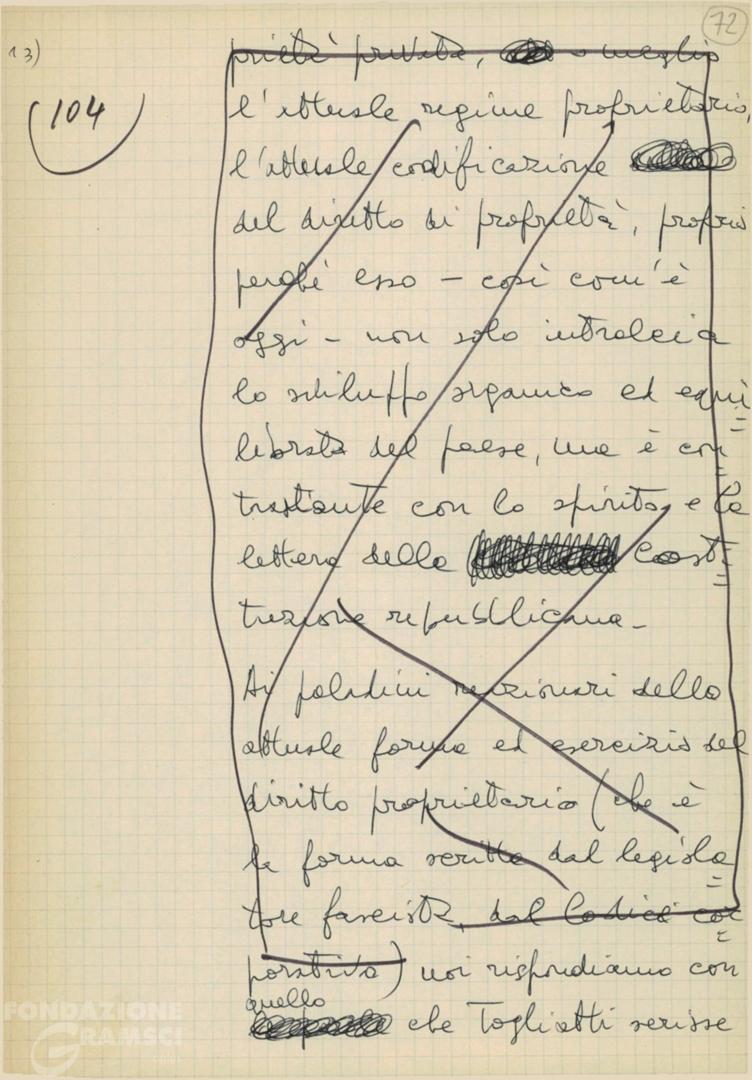 72
13)
104
prietà privata, o meglio
l'attuale regime proprietario,
l'attuale codificazione
del diritto di proprietà, proprio
perché esso – così com'è
oggi – non solo intralcia
lo sviluppo organico ed equi=
librato del paese, ma è con=
trastante con lo spirito e la
lettera della Costi=
tuzione repubblicana.
Ai paladini reazionari della
attuale forma ed esercizio del
diritto proprietario (che è
la forma scritta dal legisla=
tore fascista, dal Codice cor=
porativo) noi rispondiamo con
quello
che Togliatti scrisse
FONDAZIONE
GRAMSCI